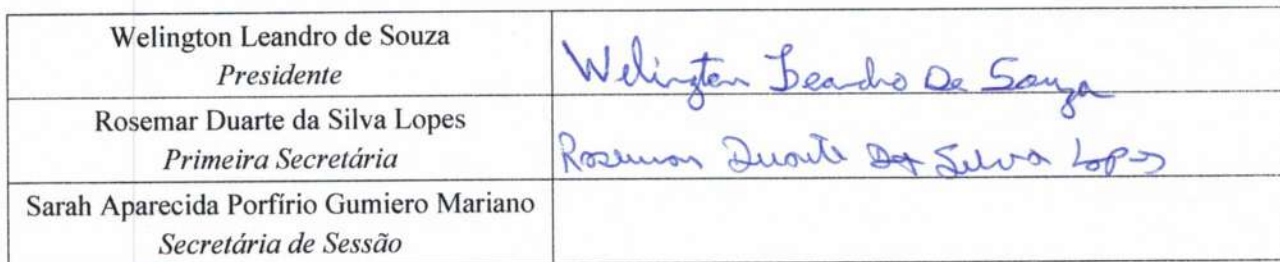 Welington Leandro de Souza
Presidente
Welington Leandro De Souza
Rosemar Duarte da Silva Lopes
Primeira Secretária
Rosemar Duarte Da Silva Lopes
Sarah Aparecida Porfírio Gumiero Mariano
Secretária de Sessão